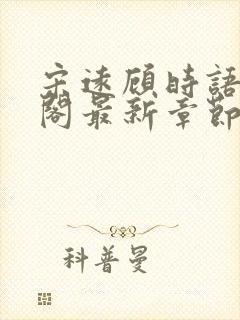 宋遠顧時語
閣最新章節
科普曼